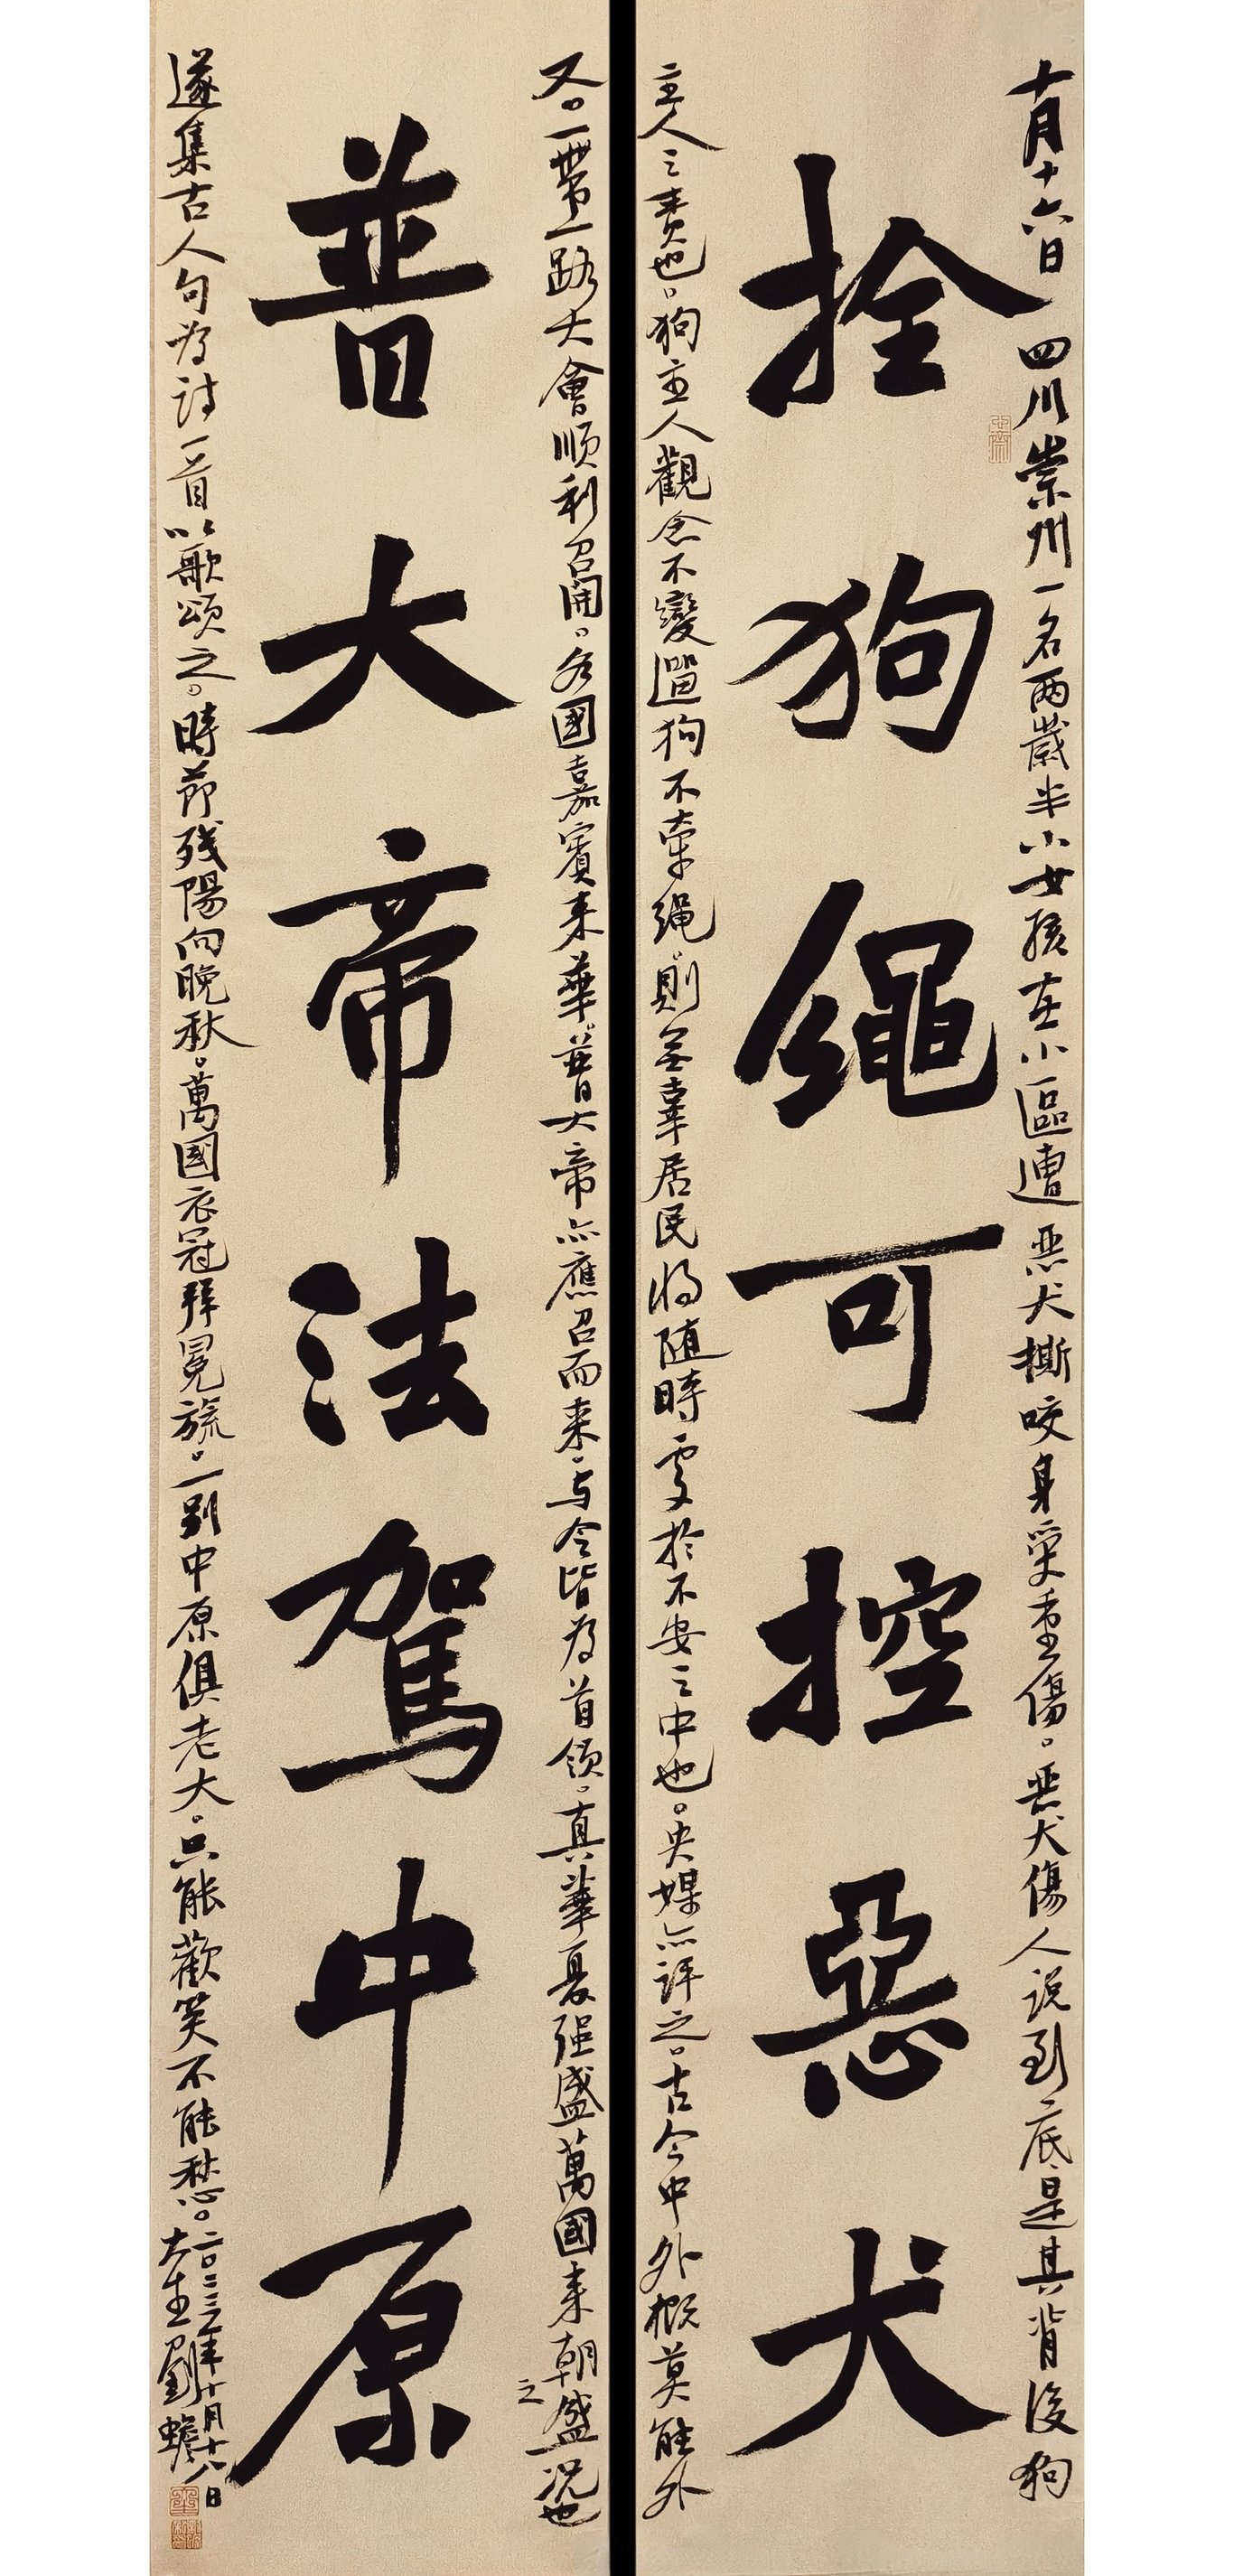 十月十六日四川崇州一名两歲半小女孩在小區遭惡犬撕咬身受重傷。惡犬傷人说到底是其背後狗
拴狗繩可控惡犬
主人之责也。狗主人觀念不變遛狗不牵绳。則無辜居民将随時處於不安之中也。央媒亦评之。古今中外概莫能外
又。一带一路大會顺利召開。各國嘉賓来華。普大帝亦應召而来。与今皆为首领。真華夏强盛萬國来朝之盛况也
普大帝法駕中原
遂集古人句为诗一首以歌颂之。時節残陽向晚秋。萬國衣冠拜冕旒。一别中原俱老大。只能歡笑不能愁。二〇二三年十月十八日
大生劉蟾